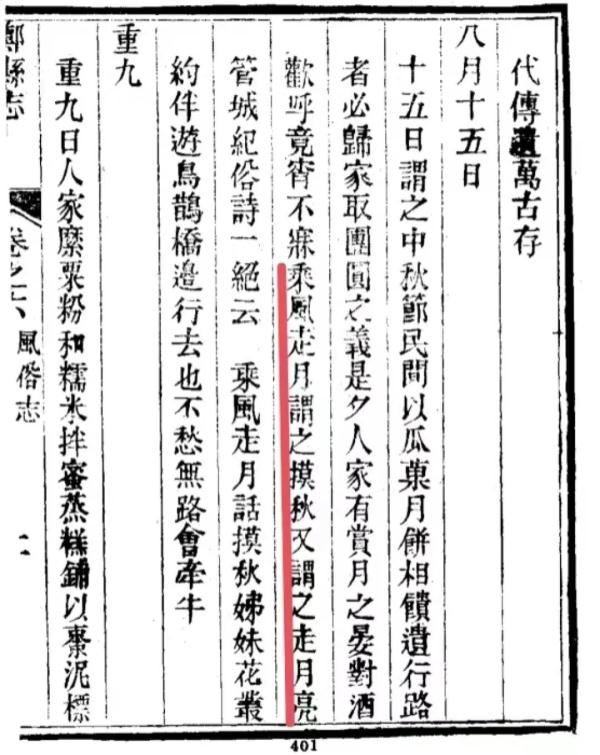 代傳遺萬古存
八月十五日
十五日謂之中秋節民間以瓜菓月餅相饋遺行路
者必歸家取團圓之義是夕人家有賞月之晏對酒
歡呼竟宵不寐乘風走月謂之摸秋又謂之走月亮
管城紀俗詩一絕云 乘風走月話摸秋姊妹花叢
約伴遊鳥鵲橋邊行去也不愁無路會牽牛
重九
重九日人家縻粟粉和糯米拌蜜蒸糕鋪以棗泥標
縣志 卷之六 風俗志
401